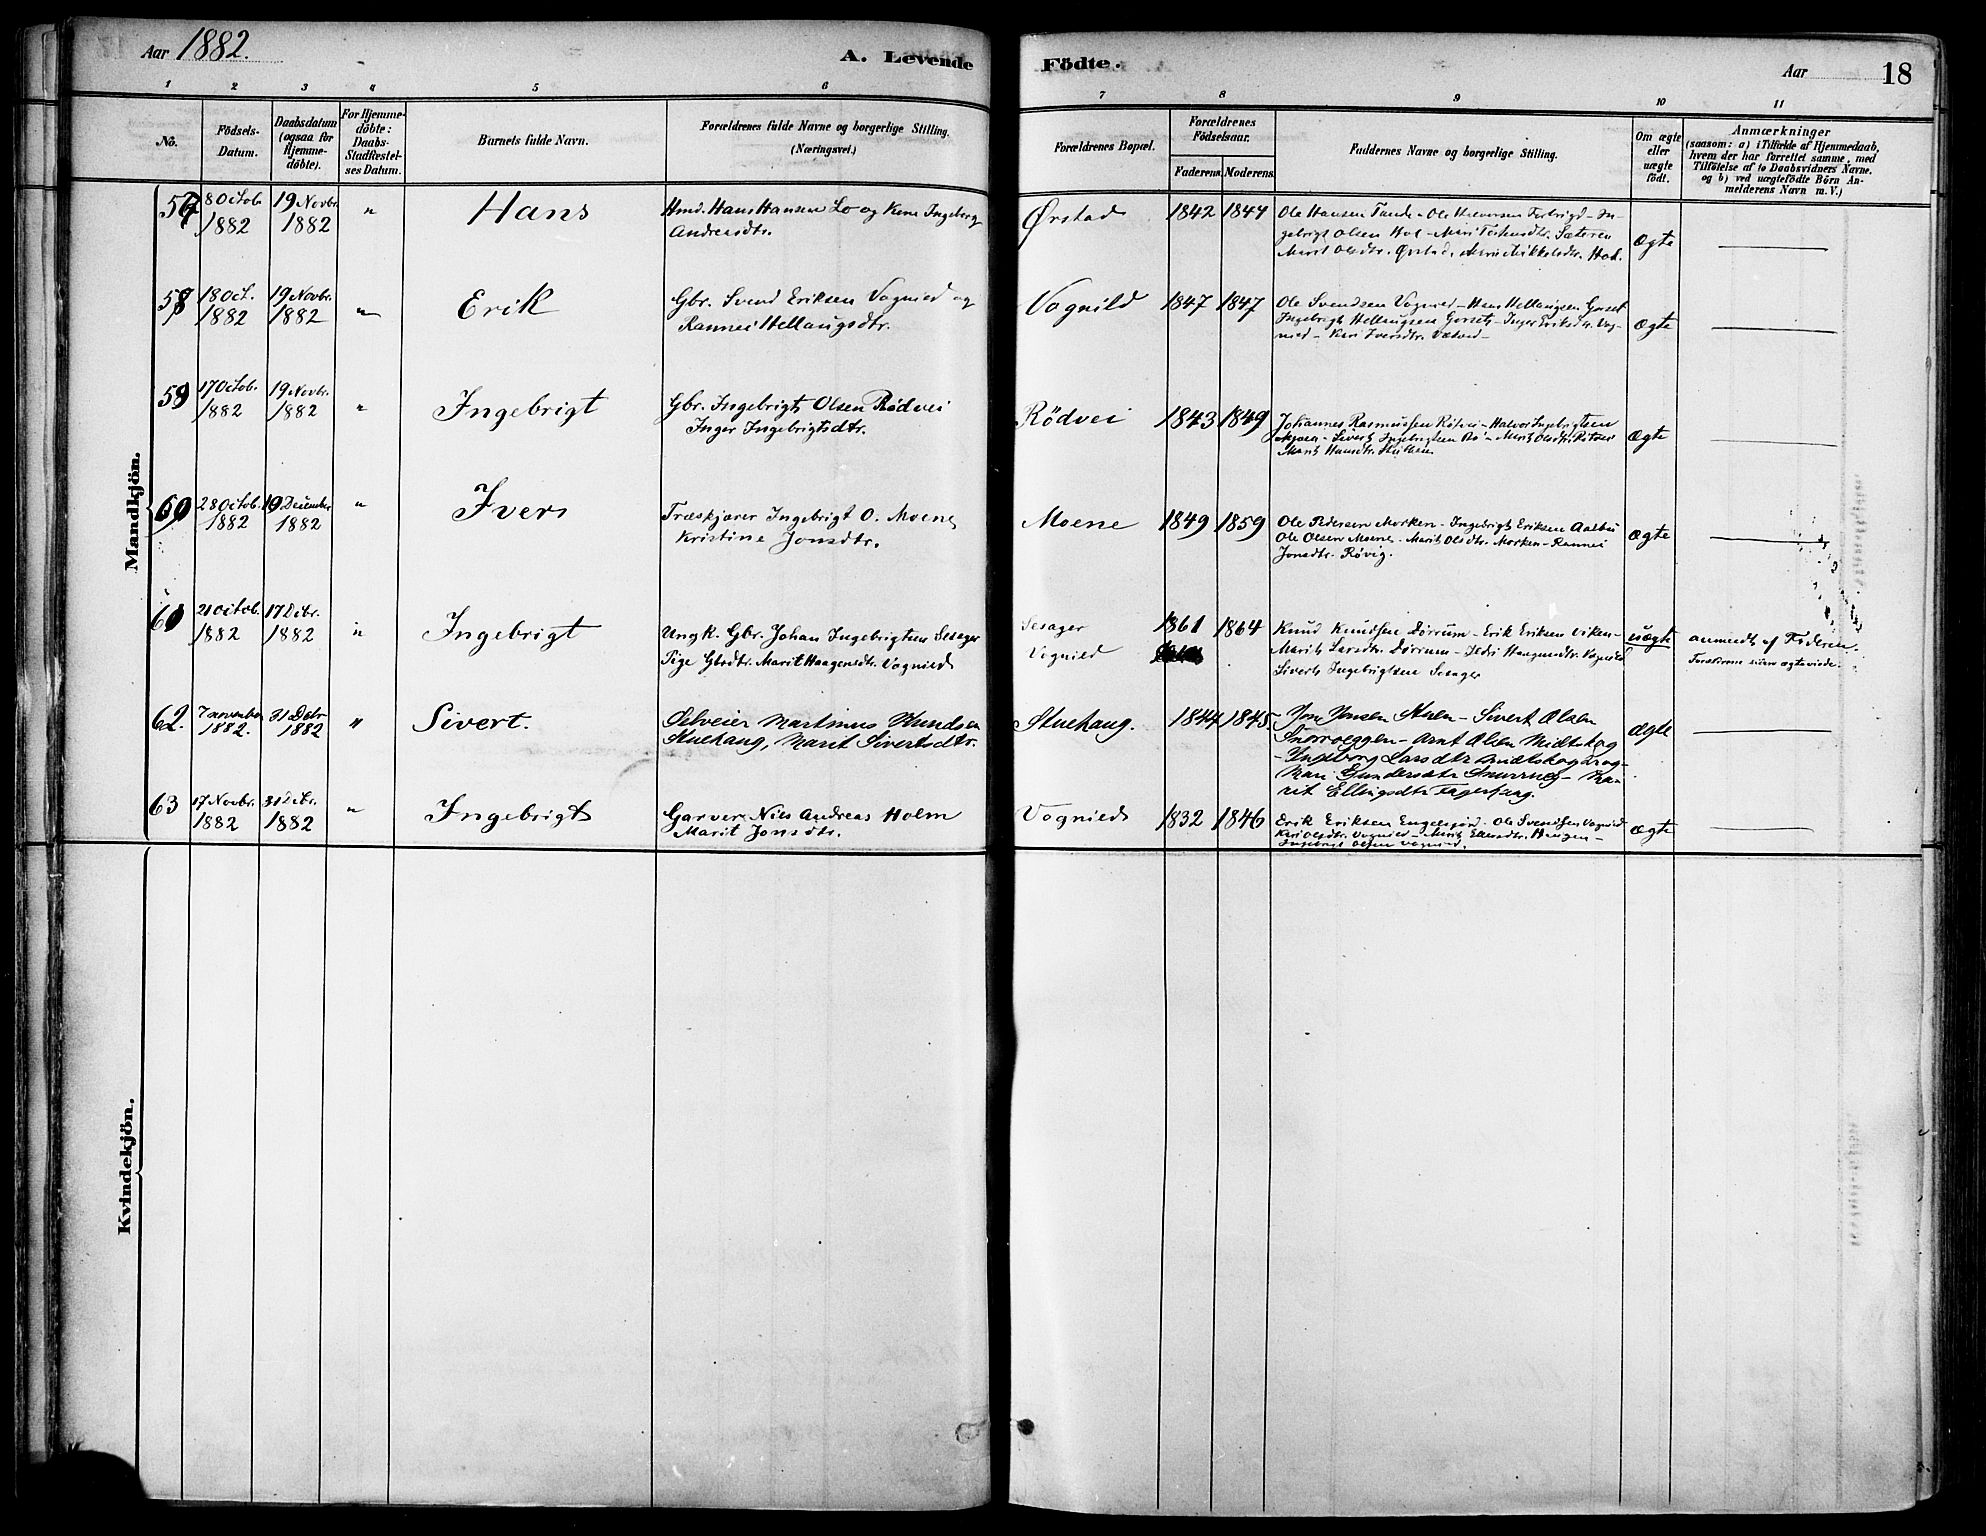 Aar 1882.
A. Levende
Födte.
Aar
18
1 2 3 4 5 6
7 8 9 10 11
No.
Födsels-
Datum.
Daabsdatum
(ogsaa for
Hjemme-
döbte).
For Hjemme-
döbte:
Daabs-
Stadfæstel-
ses Datum.
Barnets fulde Navn.
Forældrenes fulde Navne og borgerlige Stilling.
(Næringsvei.)
Forældrenes Bopæl.
Forældrenes
Födselsaar.
Faderens.
Moderens.
Faddernes Navne og borgerlige Stilling.
Om ægte
eller
uægte
födt.
Anmærkninger
(saasom: a) i Tilfælde af Hjemmedaab,
hvem der har forrettet samme, med
Tilföielse af to Daabsvidners Navne.
og b) ved uægtefödte Börn An-
melderens Navn m. V.)
Mandkjön.
57 8 Octob. 19 Novbr. " Hans Hmd. Hans Hansen Lo og Kone Ingeborg
1882 1882 Andreasdtr.
Ørstad 1842 1847 Ole Hansen Tande - Ole Halvorsen - In-
gebrigt Olsen Hol - Mari Sæteren
Marit Olsdtr. Ørstad, Mari Mikkelsdtr. Hol.
ægte
58 18 Oct. 19 Novbr. " Erik Gbr. Svend Eriksen Vognild og
1882 1882 Rannei Hellaugsdtr.
Vognild 1847 1847 Ole Svendsen Vognild - Hans Hellaugsen Gorset
Ingebrigt Hellaugsen Gorset - Inger Eriksdtr. Vog-
nild - Kari Iversdtr.
ægte
59 17 Octob. 19 Novbr. " Ingebrigt Gbr. Ingebrigt Olsen Rødvei
1882 1882 Inger Ingebrigtsdtr.
Rödvei 1843 1849 Johannes Rasmussen - Halvor Ingebrigtsen
- Sivert Ingebrigtsen - Marit Olsdtr.
Marit Hansdtr.
ægte
60 28 Octob. 19 December " Iver Træskjærer Ingebrigt O. Moene
1882 1882 Kristine Jonsdtr.
Moene 1849 1859 Ole Pedersen Morken - Ingebrigt Eriksen Aalbu
Ole Olsen Moene - Marit Olsdtr. Morken - Rannei
Jonsdtr. Røvig.
ægte
61 21 Octob. 17 Dcbr. " Ingebrigt Ungk. Gbr. Johan Ingebrigtsen Sesager
1882 1882 Pige Gbrdtr. Marit Haagensdtr. Vognild
Sesager 1861 1864
Vognild
Knud Knudsen Dørrum - Erik Eriksen Viken -
Marit Larsdtr. Dørrum - Haagensdtr. Vognild
Sivert Ingebrigtsen Sesager
uægte anmeldt af Faderen.
62. 7 november 31 Dcbr " Sivert. Selveier Martinus Knudsen
1882. 1882 Stuehaug, Marit Sivertsdtr.
Stuehaug. 1844 1845. Jon Jonsen Stuen - Sivert Olsen
Snorroeggen - Arnt Olsen Midtskog
- Ingeborg Larsdtr Midtskog og -
Mari Gundersdtr - Ma-
rit Ellingsdtr Fagerhaug.
ægte
63 17 Novbr. 31 Dcbr. " Ingebrigt Garver Nils Andreas Holm
1882 1882 Marit Jonsdtr.
Vognild 1832 1846 Erik Eriksen Engelsjord - Ole Svendsen Vognild
Kari Olsdtr. Vognild - Marit Haugen -
Ingebrigt Olsen Vognild.
ægte
Kvindekjön.